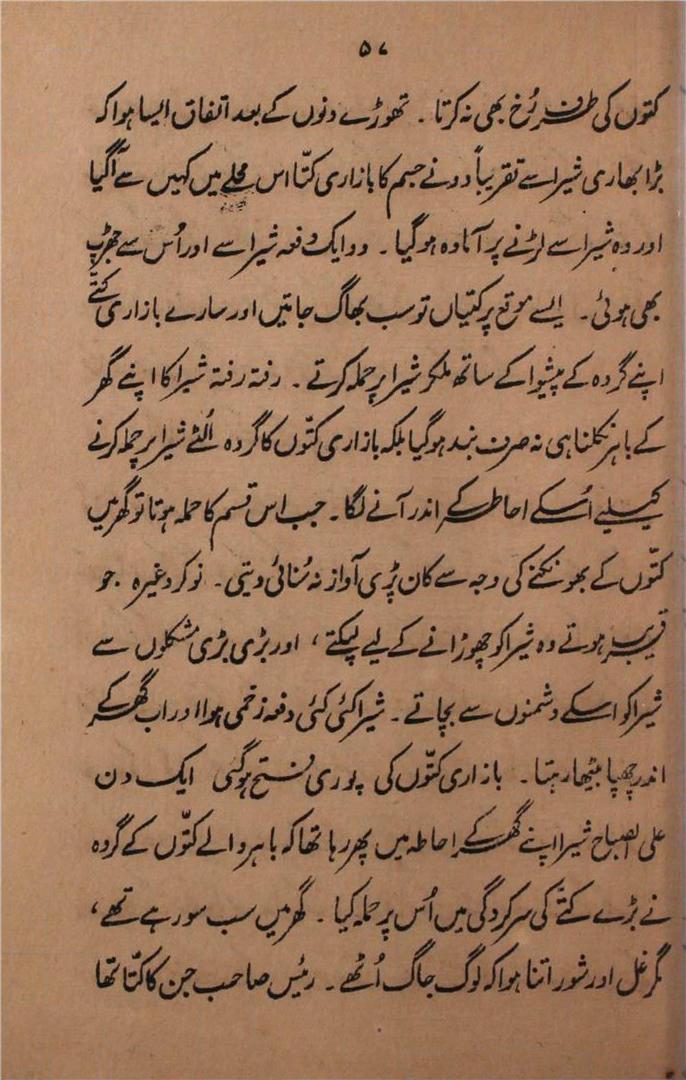 ۵۷
کتوں کی طرف رُخ بھی نہ کرتا ۔ تھوڑے دنوں کے بعد اتفاق ایسا ہوا کہ
بڑا بھاری شیرا سے تقریباً دونے جسم کا بازاری کتّا اس محلے میں کہیں سے آگیا
اور وہ شیرا سے لڑنے پر آمادہ ہوگیا ۔ دو ایک دفعہ شیرا سے اور اُس سے جھڑپ
بھی ہوئی ۔ ایسے موقع پر کتیاں تو سب بھاگ جاتیں اور سارے بازاری کتّے
اپنے گروہ کے پیشوا کے ساتھ ملکر شیرا پر حملہ کرتے ۔ رفتہ رفتہ شیرا کا اپنے گھر
کے باہر نکلنا ہی نہ صرف بند ہوگیا بلکہ بازاری کتّوں کا گروہ اُلٹے شیرا پر حملہ کرنے
کیلیے اُسکے احاطہ کے اندر آنے لگا ۔ جب اس قسم کا حملہ ہوتا تو گھر میں
کتّوں کے بھونکنے کی وجہ سے کان پڑی آواز نہ سُنائی دیتی ۔ نوکر وغیرہ جو
قریب ہوتے وہ شیرا کو چھوڑانے کے لیے لپکتے ، اور بڑی بڑی مشکلوں سے
شیرا کو اسکے دشمنوں سے بچاتے ۔ شیرا کئی کئی دفعہ زخمی ہوا اور اب گھر کے
اندر چھپا بیٹھا رہتا ۔ بازاری کتّوں کی پوری فتح ہوگئی ایک دن
علی الصباح شیرا اپنے گھر کے احاطہ میں پھر رہا تھا کہ باہر والے کتّوں کے گروہ
نے بڑے کتّے کی سرکردگی میں اُس پر حملہ کیا ۔ گھر میں سب سو رہے تھے ،
مگر غل اور شور اتنا ہوا کہ لوگ جاگ اُٹھے ۔ رئیس صاحب جن کا کتّا تھا